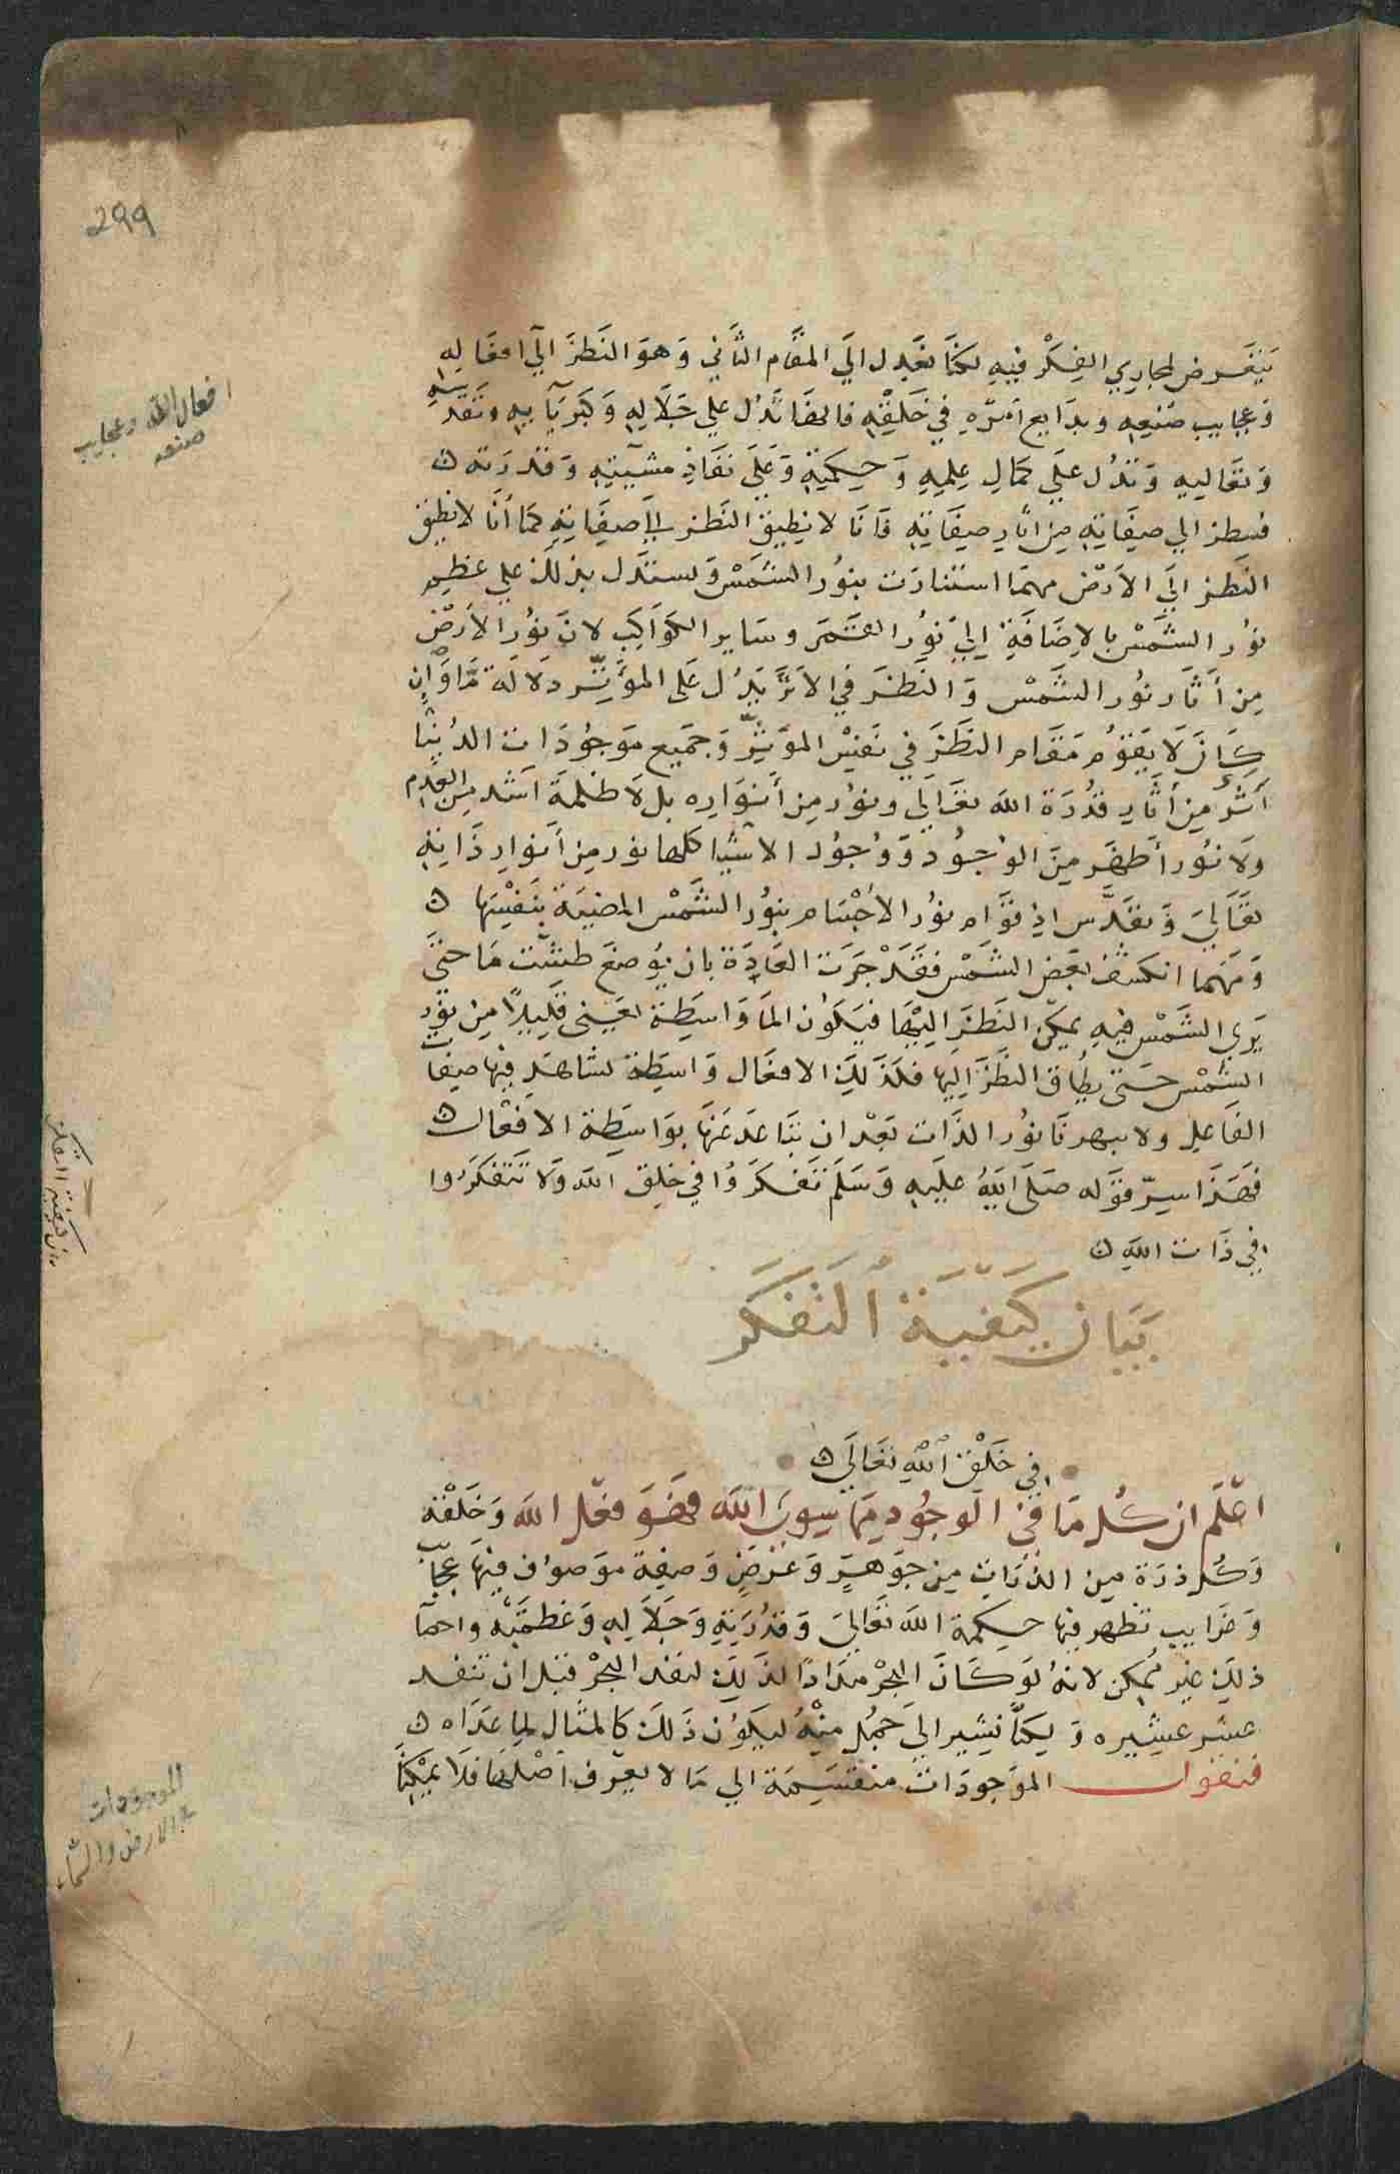 299
يتعرض لمجاري الفكر فيه لكنا نعدل الى المقام الثاني وهو النظر الى افعاله
وعجايب صنعه وبدايع امره في خلقه فانها تدل علي جلاله وكبريايه وتقدسه
وتعاليه وتدل علي كمال علمه وحكمته وعلى نفاذ مشيته وقدرته ن
فينظر الي صفاته من اثار صفاته فانا لا نطيق النظر الى صفاته كما أنا لا نطيق
النظر الى الارض مهما استنارت بنور الشمس ونستدل بذلك علي عظم
نور الشمس بالاضافة الى نور القمر وساير الكواكب لان نور الارض
من أثار نور الشمس والنظر في الاثر يدل على المؤثر دلالة ما وان
كان لا يقوم مقام النظر في نفس الموثر وجميع موجودات الدنيا
أثر من أثار قدرة الله تعالي ونور من أنواره بل لا ظلمة اشد من العدم
ولا نور أظهر من الوجود ووجود الاشيا كلها نور من أنوار ذاته
تعالى وتقدس اذ قوام نور الأجسام بنور الشمس المضية بنفسها ن
ومهما انكسف بعض الشمس فقد جرت العادة بان يوضع طشت ما حتى
يرى الشمس فيه يمكن النظر اليها فيكون الما واسطة يغض قليلا من نور
الشمس حتى يطاق النظر اليها فكذلك الافعال واسطة نشاهد فيها صفات
الفاعل ولا يبهرنا نور الذات بعد ان تباعدعنها بواسطة الافعال ن
فهذا سر قوله صلى الله عليه وسلم تفكروا في خلق الله ولا تتفكروا
في ذات الله ن
بيان كيفية التفكر
في خلق الله تعالى ن
اعلم ان كل ما في الوجود مما سوى الله فهو فعل الله وخلقه
وكل ذرة من الذرات من جوهر وعرض وصفة موصوف فيها عجايب
وغرايب تظهر فيها حكمة الله تعالى وقدرته وجلاله وعظمته واحصا
ذلك غير ممكن لانه لو كان البحر مدادا لذلك لنفد البحر قبل ان تنفد
عشر عشيره ولكنا نشير الى جمل منه ليكون ذلك كالمثال لما عداه ن
فنقول الموجودات منقسمة الي ما لا يعرف اصلها فلا يمكننا
افعال الله وعجايب
صنعه
بيان كيفية التفكر
الموجودات
في الارض والسماء